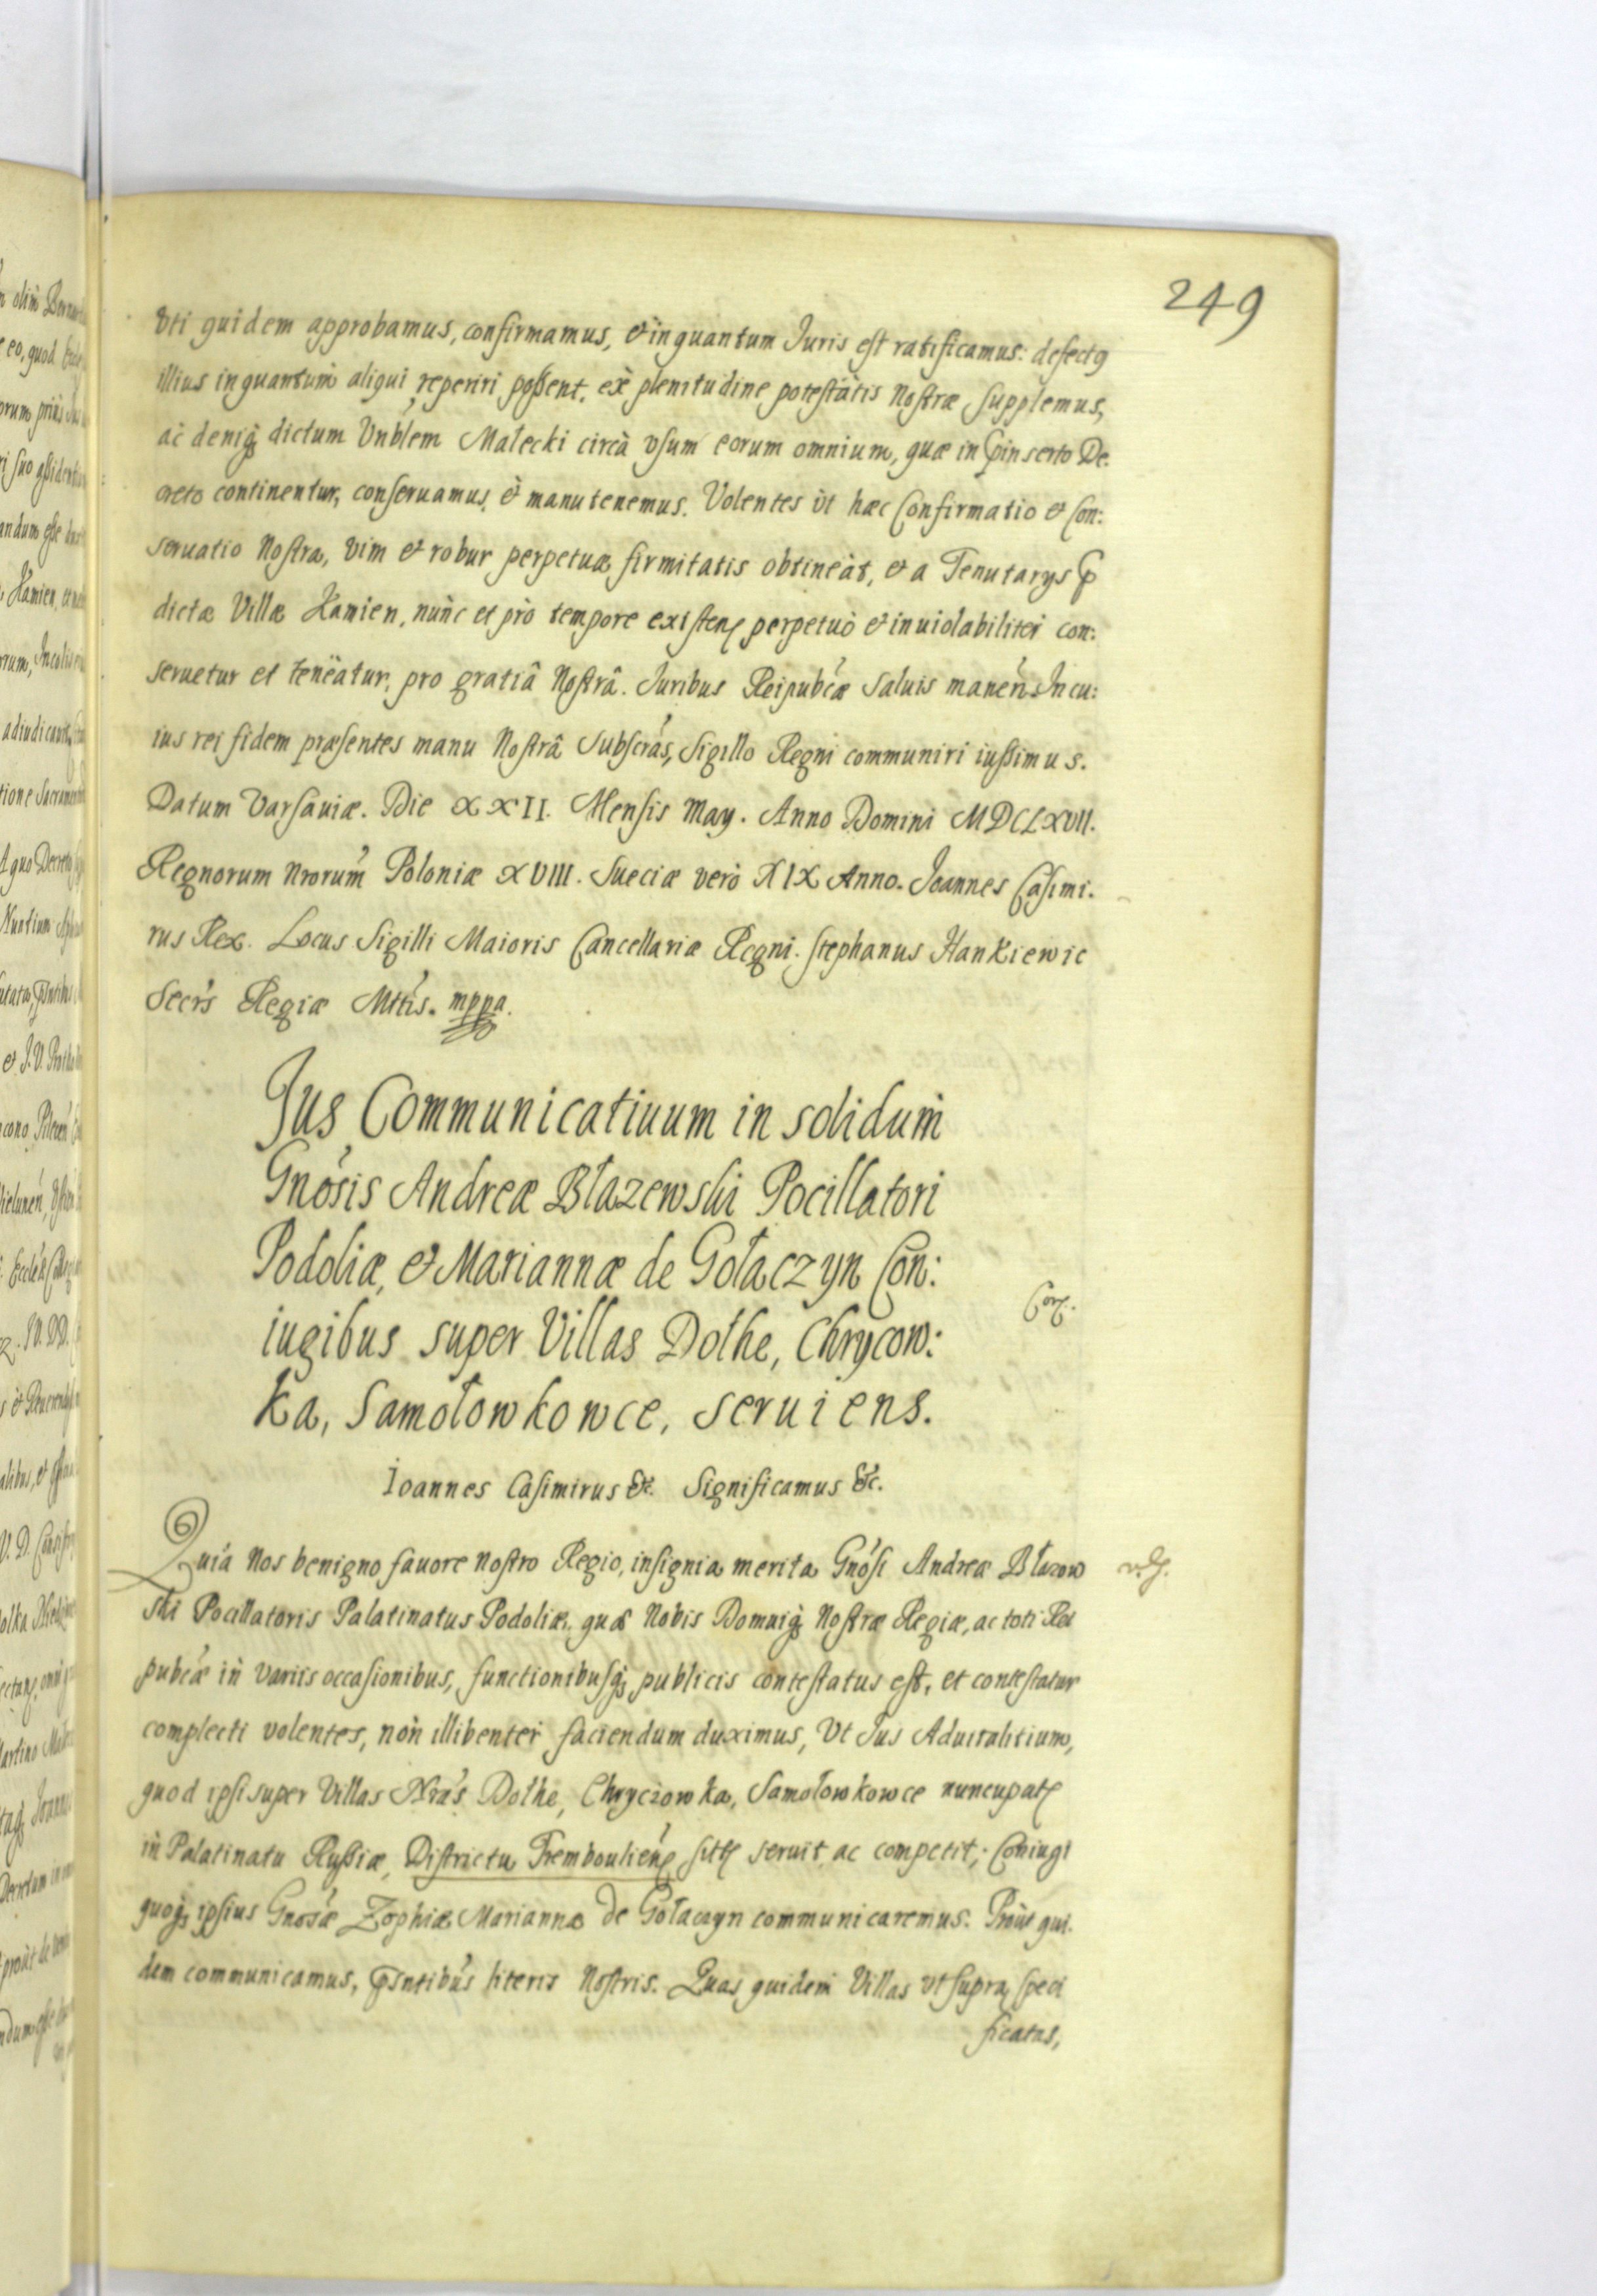 249
Vti quidem approbamus, confirmamus, et inquantum Juris est ratificamus: defectq
illius inquantum aliqui reperiri possent, ex plenitudine potestatis Nostræ supplemus,
ac deniq dictum Vnblem Małecki circà vsum eorum omnium, quæ in pinserto De:
creto continentur, conseruamus, et manutenemus. Volentes vt hæc Confirmatio et Con:
seruatio Nostra, vim et robur perpetuæ firmitatis obtineat, et a Tenutarys p
dictæ Villæ Kamien, nunc et pro tempore existen perpetuò et inuiolabiliter con:
seruetur et teneatur, pro gratiâ Nostrâ. Juribus Reipubcæ saluis manen. In cu:
ius rei fidem præsentes manu Nostrâ subscras, Sigillo Regni communiri iussimus.
Datum Varsauiæ. Die XXII. Mensis May. Anno Domini MDCLXVII.
Regnorum Nrorum Poloniæ XVIII. Sueciæ verò XIX Anno. Joannes Casimi.
rus Rex. Locus Sigilli Maioris Cancellariæ Regni. Stephanus Hankiewic
Secrs Regiæ Mttis. mppa.
Jus Communicatiuum in solidum
Gnosis Andreæ Błazewski Pocillatori
Podoliæ, et Mariannæ de Gołaczyn Con:
iugibus super Villas Dołhe, Chrycow:
ka, Samołowkowce, seruiens.
Cor.
Ioannes Casimirus &c. Significamus &c.
Quia Nos benigno fauore nostro Regio, insignia merita Gnosi Andreæ Błazow
ski Pocillatoris Palatinatus Podoliæ, quæ Nobis Domuiq Nostræ Regiæ, ac toti Rei
pubcæ in variis occasionibus, functionibusq publicis contestatus est, et contestatur
complecti volentes, non illibenter faciendum duximus, Vt Jus Aduitalitium,
quod ipsi super Villas Nras Dołhe, Chryczowka, Samołowkowce nuncupat
in Palatinatu Russiæ, Districtu Tremboulien sitt seruit, ac competit, Coniugi
quoq ipsius Gnosæ Zophiæ Mariannæ de Gołaczyn communicaremus. Prout qui.
dem communicamus, psntibus literis Nostris. Quas quidem Villas vt supra speci
ficatas,